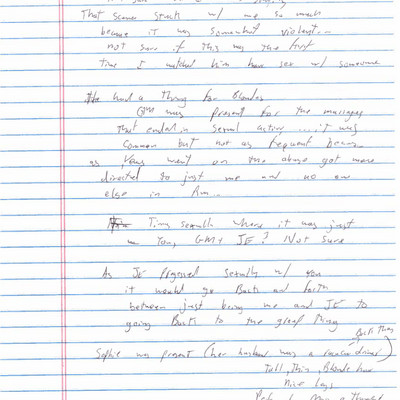 That scene stuck w/ me so much
because it was somewhat violent...
not sure if this was the first
time I watched him have sex w/ someone
He had a thing for Blondes
GM was present for the massages
That ended in sexual active ....it was
common but not as frequent because
as years went on the abuse got more
directed to just me and no one
else in Rm...
Times sexually where it was just
You, GM + JE? Not sure
As JE progressed sexually w/ you
it would go Back and forth
between just being me and JE to
going Back to the group thing
Sophie was present (her husband was a racecar driver)
Tall, Thin, Blonde hair
Nice Legs